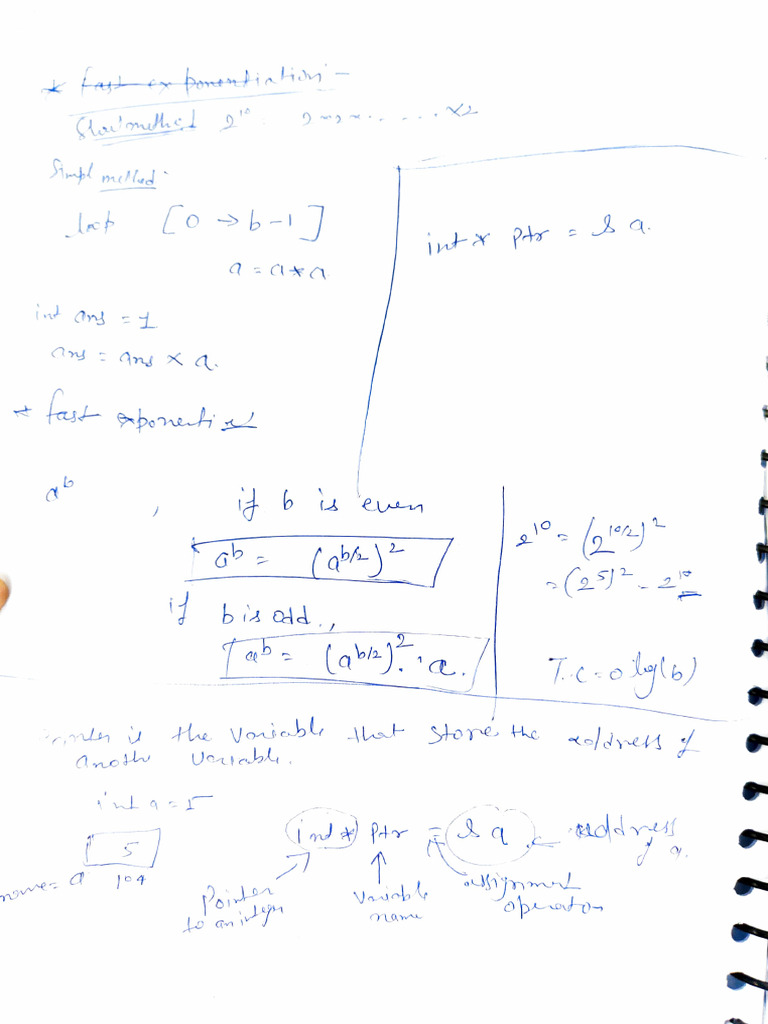 * fast exponentiation -
Slow method 2^10 2×2× . . . . . . . ×2
Simpl method -
loop [0 → b-1]
a = a * a
int * ptr = & a.
int ans = 1
ans = ans × a.
* fast exponenti
a^b , if b is even
a^b = (a^b/2)^2
if b is odd.,
a^b = (a^b/2)^2 . a.
2^10 = (2^10/2)^2
= (2^5)^2 - 2^10
T.C = O log(b)
is the variable that store the address of
anothe variable.
int a = 5
5
name = a 104
int * ptr = & a ← address of a.
Pointer to an integer
Variable name
assignment operator